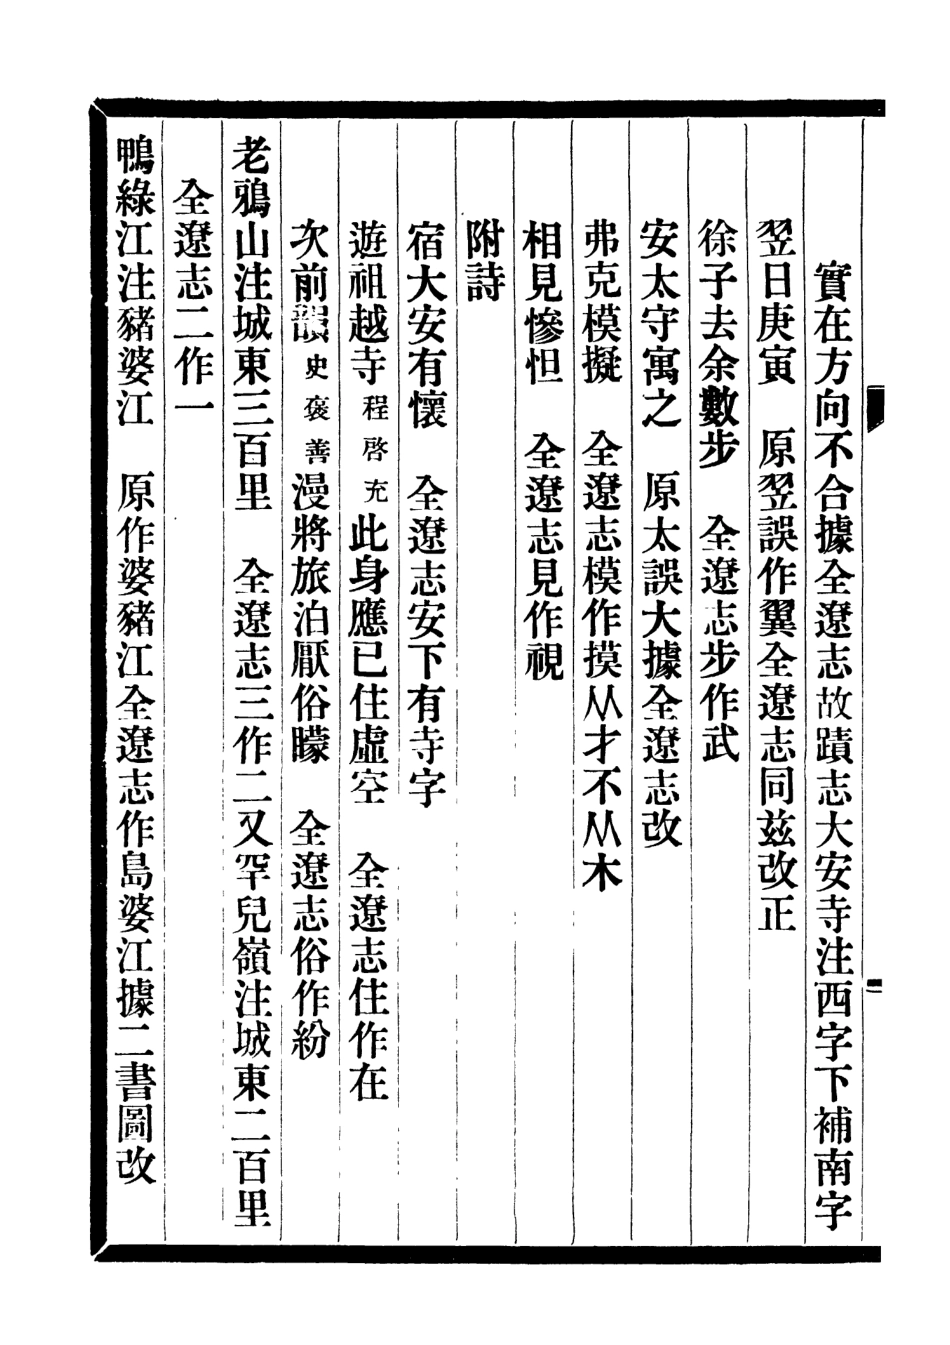 實在方向不合據全遼志故蹟志大安寺注西字下補南字
翌日庚寅　原翌誤作翼全遼志同茲改正
徐子去余數步　全遼志步作武
安太守寓之　原太誤大據全遼志改
弗克模擬　全遼志模作摸从才不从木
相見慘怛　全遼志見作視
附詩
宿大安有懷　全遼志安下有寺字
遊祖越寺程啓充此身應已住虛空　全遼志住作在
次前韻史褒善漫將旅泊厭俗矇　全遼志俗作紛
老鴉山注城東三百里　全遼志三作二又罕兒嶺注城東二百里
全遼志二作一
鴨綠江注豬婆江　原作婆豬江全遼志作島婆江據二書圖改